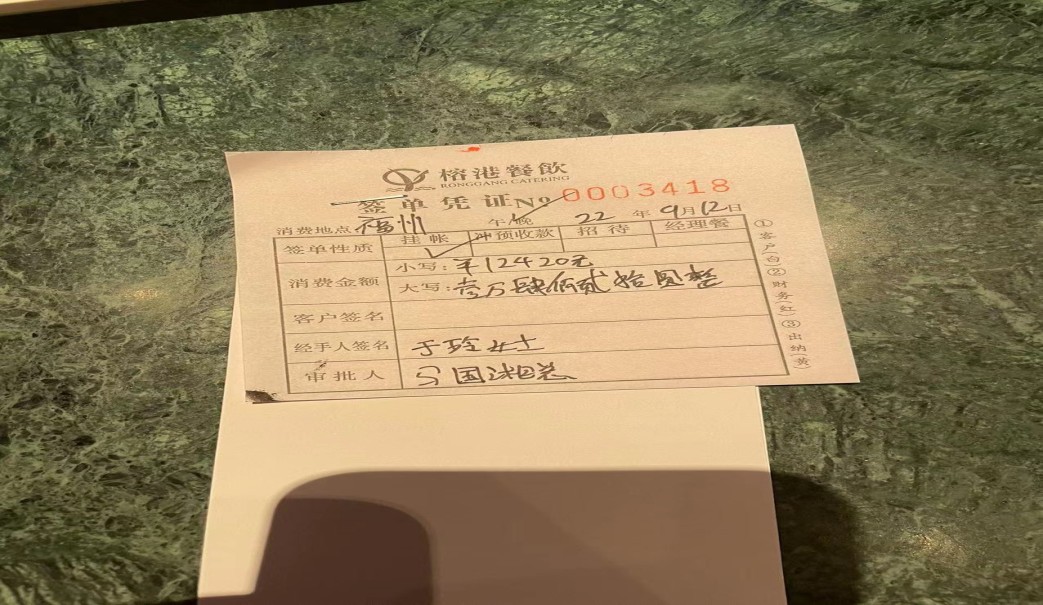 榕港餐飲
RONGGANG CATERING
签单凭证 No 0003418
消费地点 福州 午/晚 22 年 9 月 12 日
签单性质 挂帐 冲预收款 招待 经理餐
消费金额 小写：￥12420元
大写：壹万肆佰贰拾圆整
客户签名
经手人签名 于玲女士
审批人 国 总
①客户(白)②财务(红)③出纳(黄)